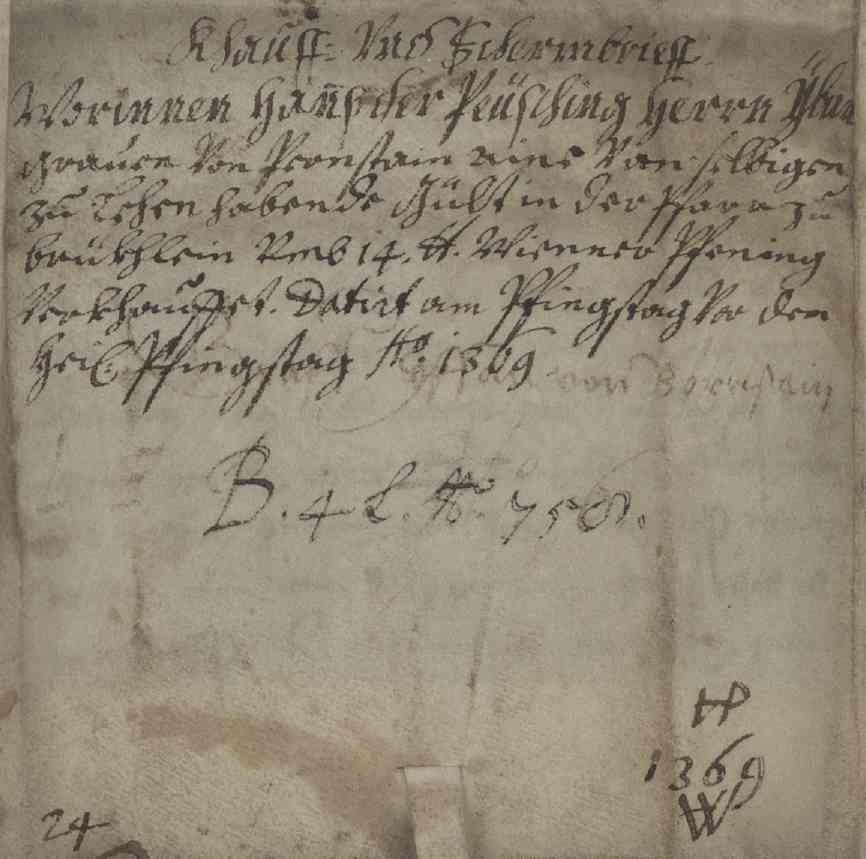 Khauff: Und Schermbrieff
Worinnen Hannß der Peüsching Herrn Yban
grauen Von Pernstain eine Von selbigen
zu Lehen habende Gült in der Pfarr zu
brükhlein Umb 14. tt. Wienner Pfening
Verkhauffet. Datirt am Pfingstag Vor dem
Heil: Pfingstag Ao. 1369
von Bernstain
B. 4 L. No. 758.
1369
W
24